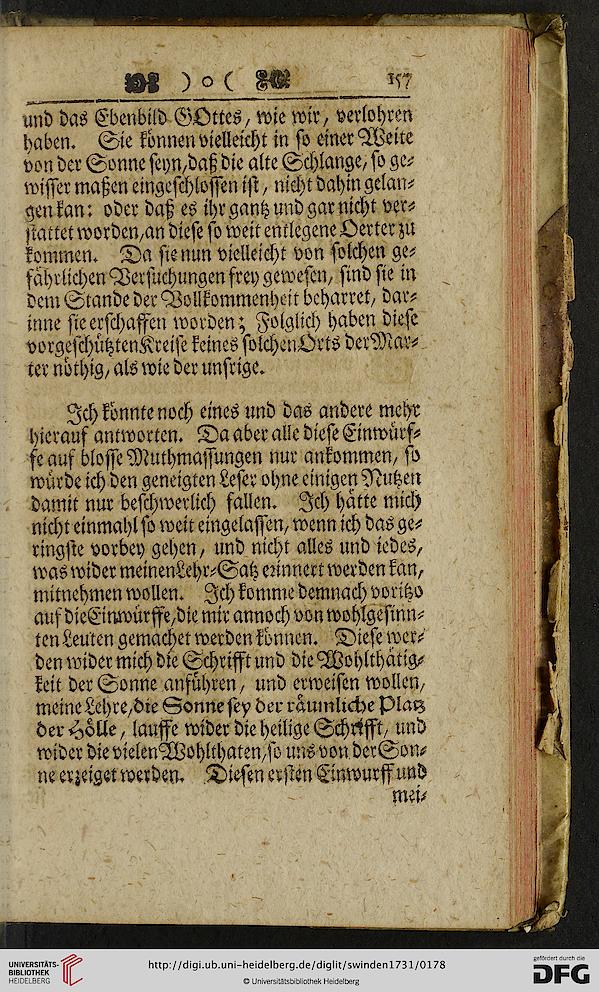 ) o ( 157
und das Ebenbild GOttes, wie wir, verlohren
haben. Sie können vielleicht in so einer Weite
von der Sonne seyn, daß die alte Schlange, so ge-
wisser maßen eingeschlossen ist, nicht dahin gelan-
gen kan: oder daß es ihr gantz und gar nicht ver-
stattet worden, an diese so weit entlegene Oerter zu
kommen. Da sie nun vielleicht von solchen ge-
fährlichen Versuchungen frey gewesen, sind sie in
dem Stande der Vollkommenheit beharret, dar-
inne sie erschaffen worden; Folglich haben diese
vorgeschützten Kreise keines solchen Orts der Mar-
ter nöthig, als wie der unsrige.
Ich könnte noch eines und das andere mehr
hierauf antworten. Da aber alle diese Einwürf-
fe auf blosse Muthmassungen nur ankommen, so
würde ich den geneigten Leser ohne einigen Nutzen
damit nur beschwerlich fallen. Ich hätte mich
nicht einmahl so weit eingelassen, wenn ich das ge-
ringste vorbey gehen, und nicht alles und iedes,
was wider meinen Lehr-Satz erinnert werden kan,
mitnehmen wollen. Ich komme demnach voritzo
auf die Einwürffe, die mir annoch von wohlgesinn-
ten Leuten gemachet werden können. Diese wer-
den wider mich die Schrifft und die Wohlthätig-
keit der Sonne anführen, und erweisen wollen,
meine Lehre, die Sonne sey der räumliche Platz
der Hölle, lauffe wider die heilige Schrifft, und
wider die vielen Wohlthaten, so uns von der Son-
ne erzeiget werden. Diesen ersten Einwurff und
mei-
UNIVERSITÄTS-
BIBLIOTHEK
HEIDELBERG
http://digi.ub.uni-heidelberg.de/diglit/swinden1731/0178
© Universitätsbibliothek Heidelberg
gefördert durch die
DFG